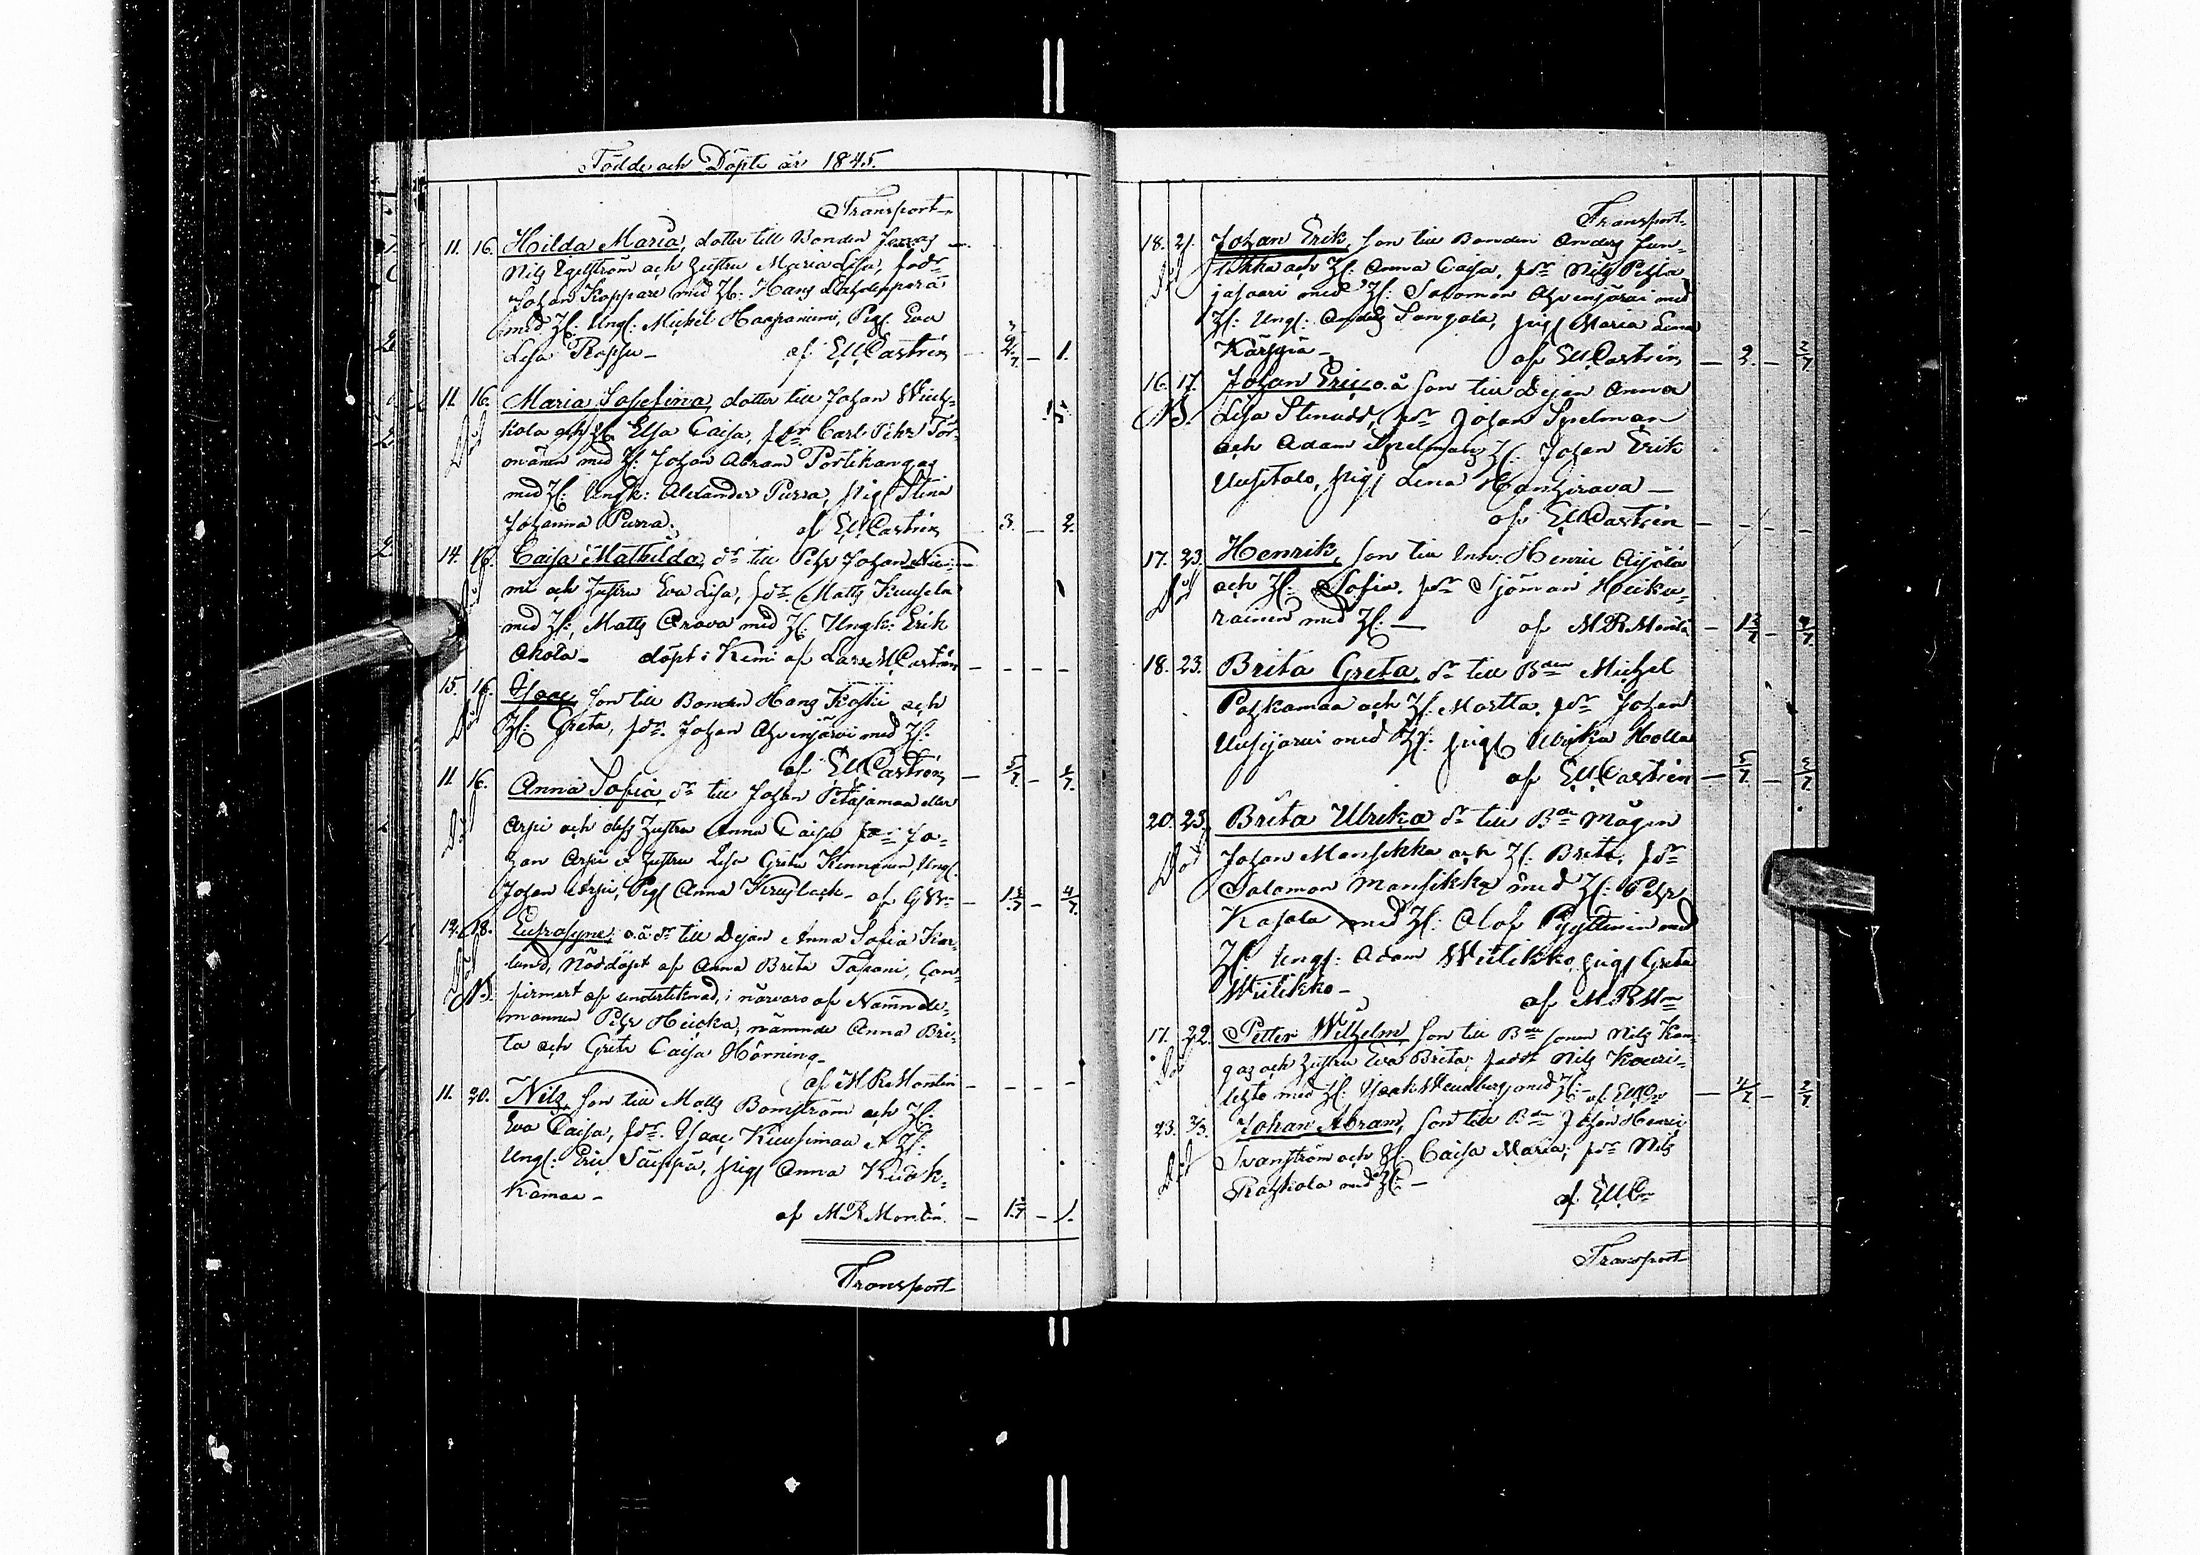 Födde och Döpte år 1845.
Transport
11. 16. Hilda Maria, dotter till Bonden
Nils Egelström och hustru Maria Lisa, fadr
Johan Koppare med H: Hans
med H: Ungk: Michel Haapaniemi, Pig. Eva
Lisa af E.U. Castrén — 1.
11. 16. Maria Josefina, dotter till Johan
kola och H. Elsa Caisa, fdr Carl Pehr Tor-
önänen med H: Johan Abram Portikangas
Död med H: Ungk: Alexander Purra, Pig Stina
Johanna Purra. af E.U. Castrén — 3. — 2.
14. 16. Caisa Mathilda, dr till Pehr Johan Nie-
mi och hustru Eva Lisa, fdr. Matts Kuusela
med H:, Matts Orava med H: Ungk: Erik
Ahola — döpt i Kemi af Lars U. Castrén — — —
15. 16. Isaac, son till Bonden Hans Koski och
Död H: Greta, fdr. Johan Ahvenjärvi med H:
af E.U. Castrén — 5/7 — 1/7.
11. 16. Anna Sofia, dr till Johan Petäjamaa eller
Död Arpi och dess hustru Anna Caisa fdr Jo-
han Arpi et hustru Lisa Greta Kinnunen, Ungk.
Johan Arpi, Pig Anna — af — 4/7.
12. 18. Eufrosyne, o.ä dr till Dejan Anna Sofia Kar-
Död lund, Nöddöpt af Anna Brita Tapani, Con-
NB. firmert af undertecknad, i närvaro af Nämnde-
mannen Pehr Heicka, nämnde Anna Bri-
ta och Greta Caisa Hörning
af M R Montin — — — —
11. 20. Nils, son till Matts Bomström och H:
Eva Caisa, fdr. Isaac Kuusimaa et H:
Ungk: Eric Säippä, Pig Anna Kuak-
kamaa —
af M R Montin. — — 1.
Transport
Transport
18. 21. Johan Erik, son till Bonden Anders Jun-
Död tikka och H: Anna Caisa, fdr Nils Petäja
jasaari med H: Salomon Ahvenjärvi med
H: Ungk: Anders Sangala, Pig Maria Lena
Kärppä — af E.U. Castrén — 2. — 2/7
16. 17. Johan Eric, o.ä son till Dejan Anna
NB. Lisa Stenudd, fdr Johan Spelman
och Adam Spelman H: Johan Erik
Uusitalo, Pig Lena Hanhirova —
af E.U. Castrén — — — —
17. 23. Henrik, son till Inh: Henric Aijälä
Död och H: Sofia. fdr Sjöman Heiku-
rainen med H: — af M R Montin — —
18. 23. Brita Greta, dr till Bden Michel
Pahkamaa och H: Martta, fdr Johan
Uusijärvi med H: Pig Ulrika Holla
af E.U. Castrén — 5/7 — 2/7
20. 23. Brita Ulrika dr till Bde Mågen
Död Johan Mansikka och H: Brita, fdr
Salomon Mansikka med H: Pehr
Kasala med H: Olof Pyyttinen med
H: Ungk: Adam Wiilikko, Pig Greta
Wiilikko — af M.R.M.
17. 22. Petter Wilhelm, son till Bde sonen Nils Kan-
Död gas och hustru Eva Brita; faddr Nils Kauri-
lehto med H: Isak med H: — af E.U.Cn — 4/7 — 2/7
23. 2/3. Johan Abram, son till Bde Johan Henric
Död Svanström och H: Caisa Maria; fdr Nils
Rahkola med H: —
af E.U.Cn
Transport